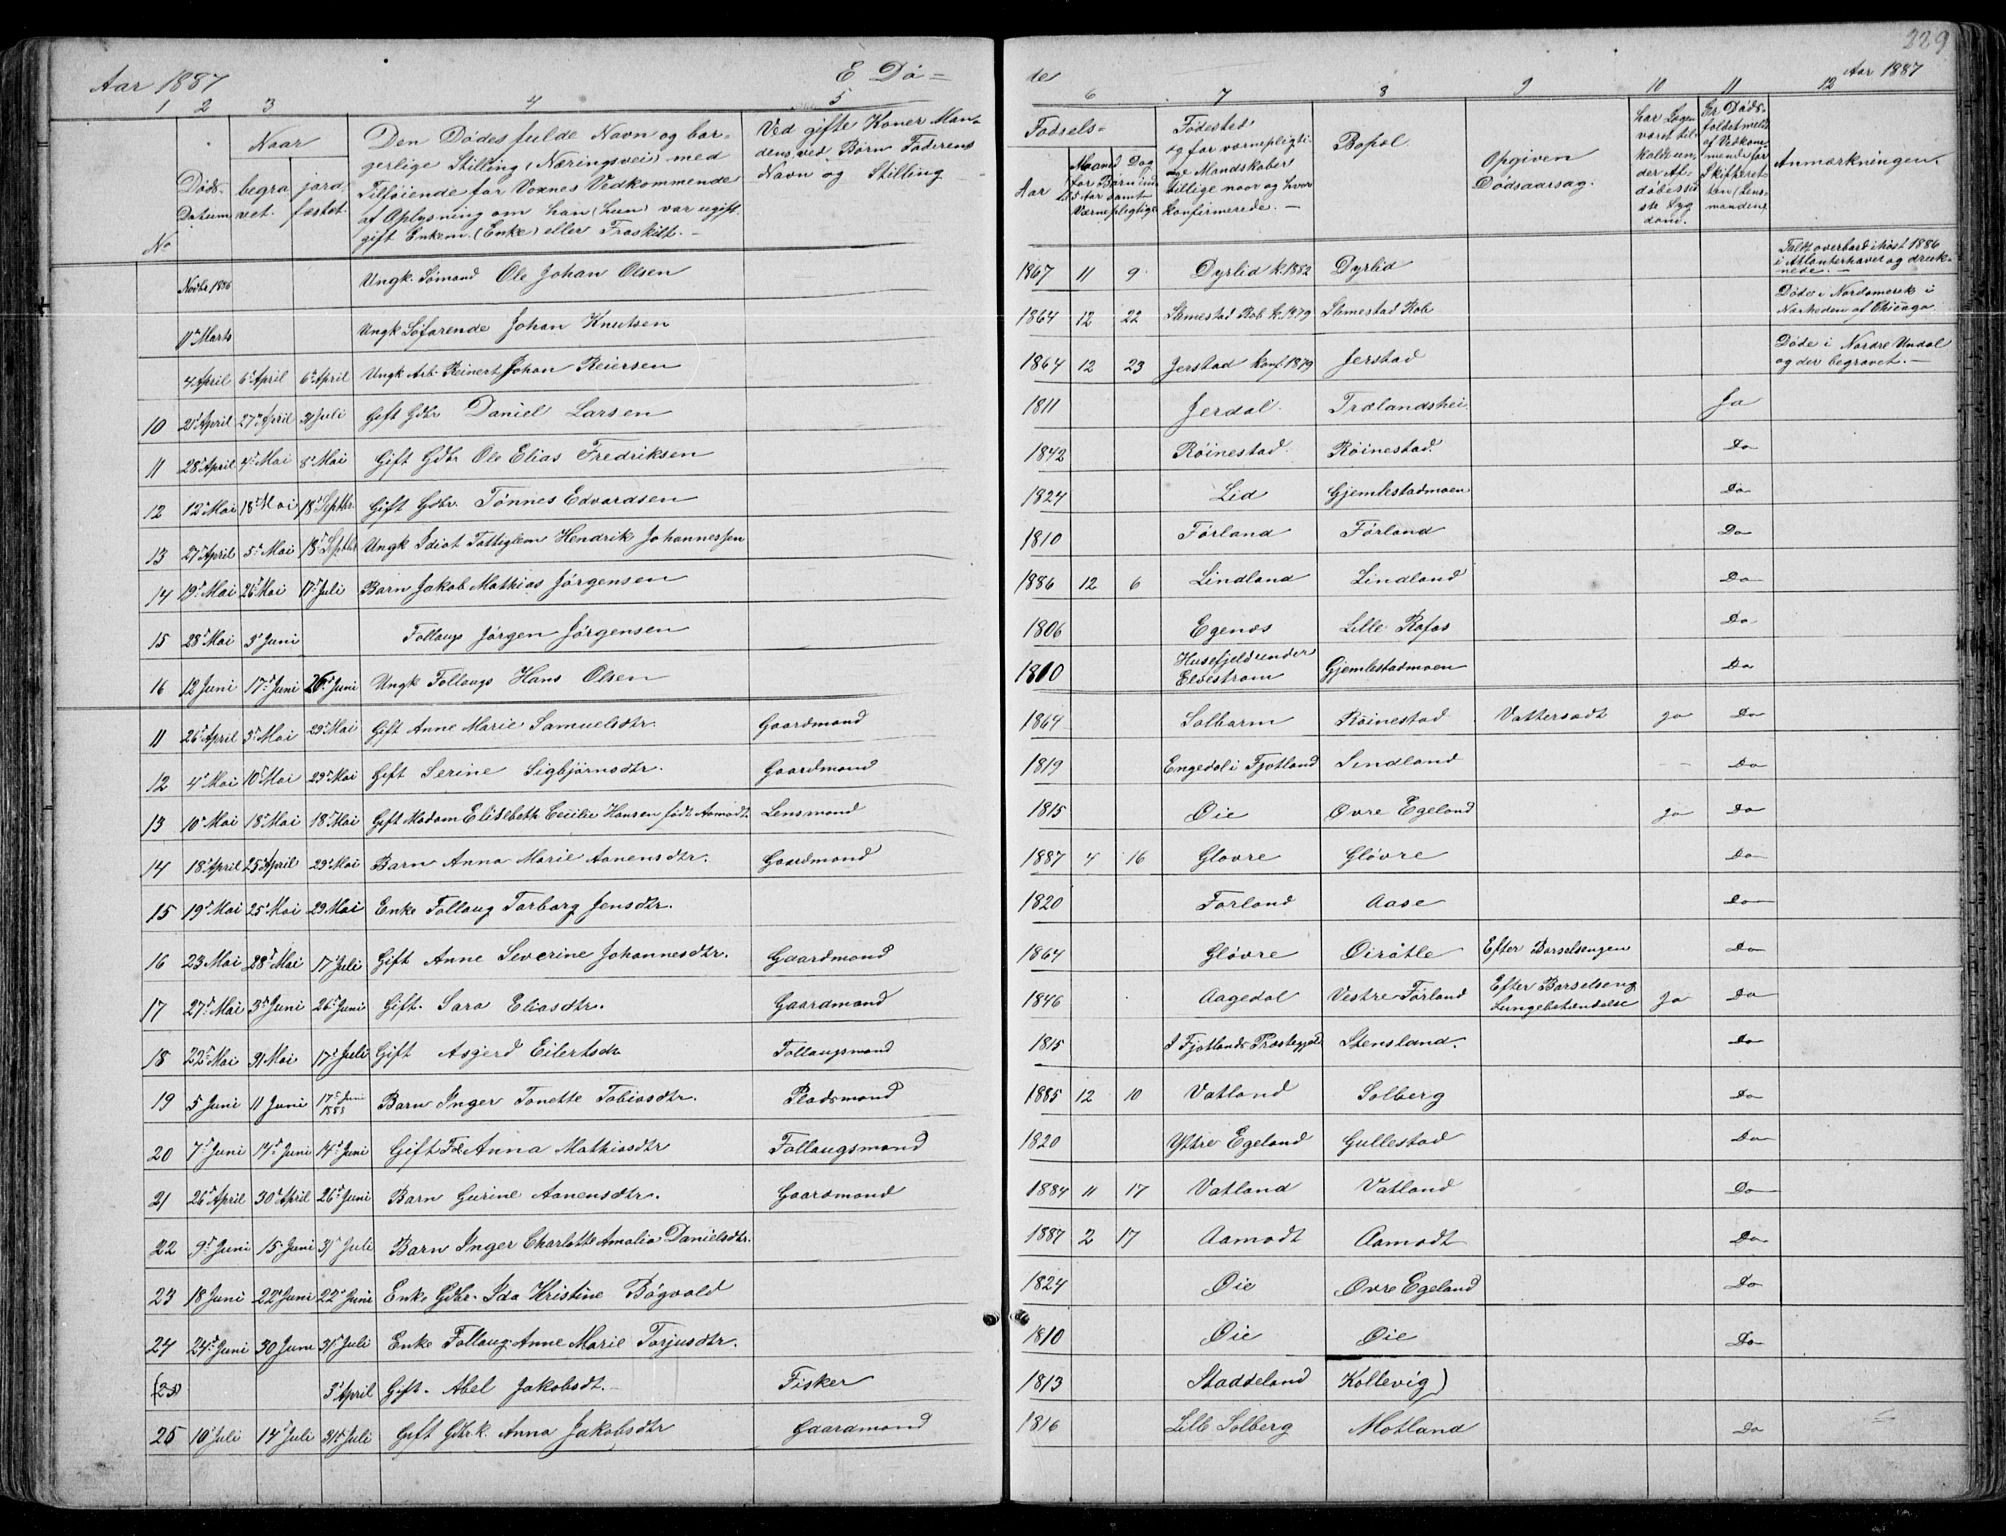 229
Aar 1887 E Dö= de Aar 1887
1 2 3 4 5 6 7 8 9 10 11 12
No
Döds-Datum
Naar
begravet.
jordfæstet.
Den Dödes fulde Navn og borgerlige Stilling (Næringsvei) med Tilföiende for Voxnes Vedkommende af Oplysning om han (hun) var ugift gift Enkem. (Enke) eller Fraskilt. –
Ved gifte Koner Mandens, ved Börn Faderens Navn og Stilling –
Födsels-
Aar
Maaned og Dag for Börn indtil 5 Aar samt Værnepligtige
Födested og for værnepligtige Mandskaber tillige naar og hvor konfirmerede. –
Bopæl.
Opgiven Dödsaarsag.
Har Lægen været tilkaldt under Afdödes sidste Sygdom.
Er Dödsfaldet meldt af Vedkommende for Skifteretten (Lensmanden)
Anmærkninger.
Nodbr 1886 Ungk. Sömand Ole Johan Olsen 1867 11 9 Dyrlid k. 1882 Dyrlid Faldt overbord i Höst 1886 i Atlanterhavet og druknede. –
11te Marts Ungk Söfarende Johan Knutsen 1864 12 22 Slimestad Rob k. 1879 Slimestad Rob Döde i Nordamerik i Nærheden af Chicago
4 April 6te April 6te April Ungk Arb. Reinert Johan Reiersen 1864 12 23 Jerstad konf. 1879 Jerstad Döde i Nordre Undal og der begravet. –
10 21 April 27de April 31 Juli Gift Gdbr Daniel Larsen 1811 Jerdal. Trælandshei Ja
11 28de April 4de Mai 8de Mai Gift Gdbr Ole Elias Fredriksen 1842 Röinestad. Röinestad. Do
12 12te Mai 18de Mai 18de Septbr. Gift Gdbr. Tönnes Edvardsen 1824 Lid Gjemlestadmoen Do
13 27de April 5te Mai 18de Septbr Ungk Idiot Fattiglem Hendrik Johannessen 1810 Förland Förland Do
14 19de Mai 26de Mai 17de Juli Barn Jakob Mathias Jörgensen 1886 12 6 Lindland Lindland Do
15 28de Mai 3die Juni Follaugs Jörgen Jörgensen 1806 Egenæs Lille Rafos Do
16 12 Juni 17de Juni 26de Juni Ungk Follaugs Hans Olsen 1810 Husefjeld under Eldestrøm Gjemlestadmoen Do
11 26de April 3die Mai 29de Mai Gift Anne Marie Samuelsdtr. Gaardmand 1864 Salbarm Röinestad Vattersodt ja Do
12 4de Mai 10de Mai 29de Mai Gift Serine Sigbjörnsdtr. Gaardmand 1819 Engedal i Fjotland Lindland Do
13 10de Mai 18de Mai 18de Mai Gift Madam Elisebeth Cecilie Hansen född Aamodt Lensmand 1815 Öie Övre Egeland ja Do
14 18de April 25de April 29de Mai Barn Anna Marie Aanensdtr. Gaardmand 1887 4 16 Glövre Glövre Do
15 19de Mai 25de Mai 29 Mai Enke Follaug Torborg Jensdtr. 1820 Förland Aase Do
16 23 Mai 28de Mai 17de Juli Gift Anne Severine Johannesdtr. Gaardmand 1864 Glövre Öiråtle Efter Barselsengen Do
17 27de Mai 3die Juni 26de Juni Gift. Sara Eliasdtr. Gaardmand 1846 Aagedal Vestre Förland Efter Barselseng Lungebetændelse Ja Do
18 22de Mai 31 Mai 17de Juli Gift Asgerd Eilertsdtr Follaugsmand 1815 I Fjotlands Præstegjæld Stensland. Do
19 5 Juni 11 Juni 17de Juni 1888 Barn Inger Tonette Tobiasdtr. Pladsmand 1885 12 10 Vatland Solberg Do
20 7de Juni 14de Juni 14de Juni Gift Fol Anna Mathiasdtr Follaugsmand 1820 Yttre Egeland Gullestad Do
21 26de April 30de April 26de Juni Barn Gurine Aanensdtr. Gaardmand 1884 11 17 Vatland Vatland Do
22 9de Juni 15 Juni 31 Juli Barn Inger Charlotte Amalia Danielsdtr. 1887 2 17 Aamodt Aamodt Do
23 18 Juni 22de Juni 22de Juni Enke Gdbr. Ida Kristine Bögvald 1824 Öie Övre Egeland Do
24 24de Juni 30 Juni 31 Juli Enke Follaug. Anne Marie Torjusdtr. 1810 Öie Öie Do
(25) 3die April Gift. Abel Jakobsdt. – Fisker 1813 Staddeland Kollevig)
25 10 Juli 14de Juli 31te Juli Gift Gdbrk. Anna Jakobsdtr Gaardmand 1816 Lille Solberg Motland Do